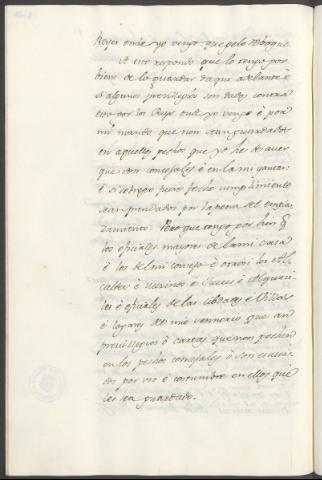 Reyes onde yo vengo que pelo otorgue
A esto respondo que lo tengo por
bien de lo guardar daqui adelante è
si algunos previllegios son dados contra
esto por los Reyes onde yo vengo è por
mi mando que non sean guardados
en aquellos pechos que yo hé de aver
que son concejales è en la mi
è si cuerpo pecho fecho cumplidamente
sean prendados por la pena del
damiento. Pero que tengo por bien q̃
los oficiales mayores de la mi casa
è los del mi consejo è oraui los Al
caldes è merinos è Jueces è Alguaci
les è oficiales de las cibdades è Villas
è logares del mio sennorio que an
previllegios è cartas que non pechen
en los pechos concejales è son escusa
dos por uso è costumbre en ellos que
les sea guardado.